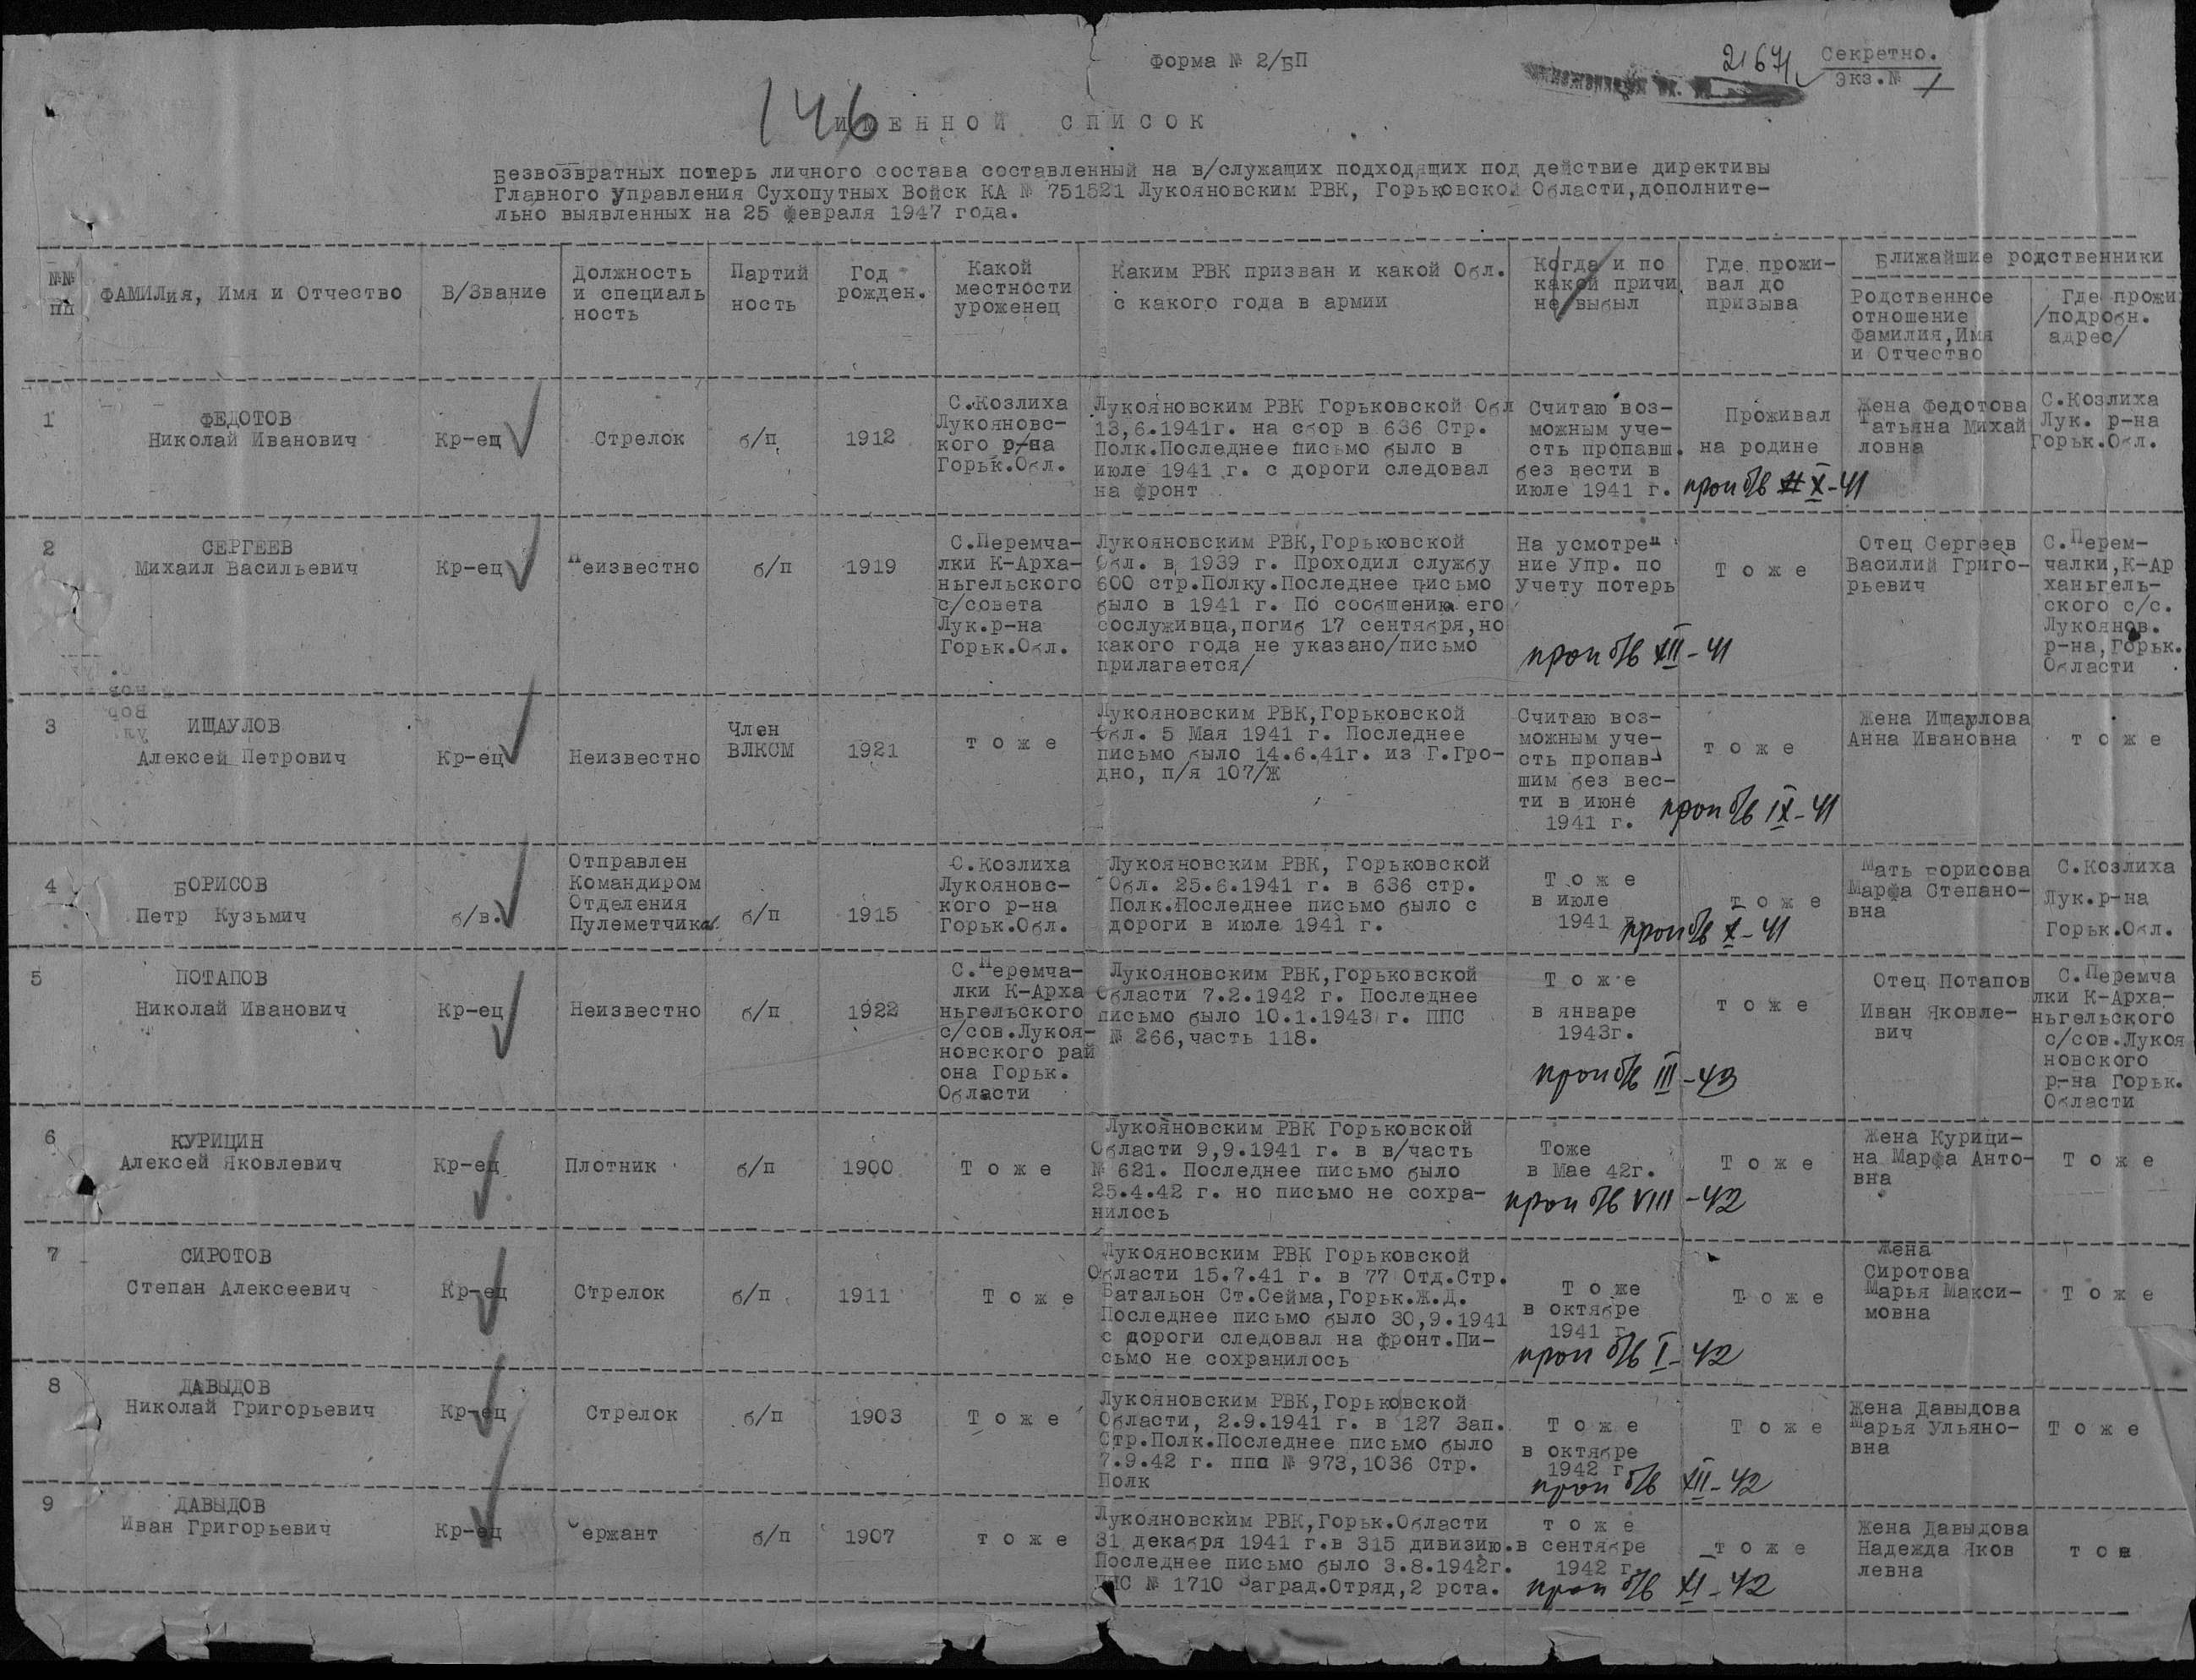 Форма № 2/БП
21671
Секретно.
Экз.№ 1
146
ИМЕННОЙ СПИСОК
Безвозвратных потерь личного состава составленный на в/служащих подходящих под действие директивы
Главного Управления Сухопутных Войск КА № 751521 Лукояновским РВК, Горьковской Области,дополните-
льно выявленных на 25 февраля 1947 года.
№№
пп
ФАМИЛия, Имя и Отчество
В/Звание
Должность
и специаль
ность
Партий
ность
Год
рожден.
Какой
местности
уроженец
Каким РВК призван и какой Обл.
с какого года в армии
Когда и по
какой причи
не выбыл
Где прожи-
вал до
призыва
Ближайшие родственники
Родственное
отношение
Фамилия,Имя
и Отчество
Где прожи
/подробн.
адрес/
1
ФЕДОТОВ
Николай Иванович
Кр-ец
Стрелок
б/п
1912
С.Козлиха
Лукояновс-
кого р/на
Горьк.Обл.
Лукояновским РВК Горьковской Обл
13,6.1941г. на сбор в 636 Стр.
Полк.Последнее письмо было в
июле 1941 г. с дороги следовал
на фронт
Считаю воз-
можным уче-
сть пропавш.
без вести в
июле 1941 г.
Проживал
на родине
проп б/в X-41
Жена Федотова
Татьяна Михай
ловна
С.Козлиха
Лук. р-на
Горьк.Обл.
2
СЕРГЕЕВ
Михаил Васильевич
Кр-ец
Неизвестно
б/п
1919
С.Перемча-
лки К-Арха-
ньгельского
с/совета
Лук.р-на
Горьк.Обл.
Лукояновским РВК,Горьковской
Обл. в 1939 г. Проходил службу
600 стр.Полку.Последнее письмо
было в 1941 г. По сообщению его
сослуживца,погиб 17 сентября,но
какого года не указано/письмо
прилагается/
На усмотре
ние Упр. по
Учету потерь
проп б/в XII-41
Т о ж е
Отец Сергеев
Василий Григо-
рьевич
С.Перем-
чалки,К-Ар
ханьгель-
ского с/с.
Лукоянов.
р-на,Горьк.
Области
3
ИЩАУЛОВ
Алексей Петрович
Кр-ец
Неизвестно
Член
ВЛКСМ
1921
т о ж е
Лукояновским РВК,Горьковской
Обл. 5 Мая 1941 г. Последнее
письмо было 14.6.41г. из Г.Гро-
дно, п/я 107/Ж
Считаю воз-
можным уче-
сть пропав-
шим без вес-
ти в июне
1941 г.
проп б/в IX-41
т о ж е
Жена Ищаулова
Анна Ивановна
т о ж е
4
БОРИСОВ
Петр Кузьмич
б/в.
Отправлен
Командиром
Отделения
Пулеметчиков
б/п
1915
С.Козлиха
Лукояновс-
кого р-на
Горьк.Обл.
Лукояновским РВК, Горьковской
Обл. 25.6.1941 г. в 636 стр.
Полк.Последнее письмо было с
дороги в июле 1941 г.
Т о ж е
в июле
1941 г
проп б/в X-41
т о ж е
Мать Борисова
Марфа Степано-
вна
С.Козлиха
Лук.р-на
Горьк.Обл.
5
ПОТАПОВ
Николай Иванович
Кр-ец
Неизвестно
б/п
1922
С.Перемча-
лки К-Арха
ньгельского
с/сов.Лукоя-
новского рай
она Горьк.
Области
Лукояновским РВК,Горьковской
Области 7.2.1942 г. Последнее
письмо было 10.1.1943 г. ППС
№ 266,часть 118.
Т о ж е
в январе
1943г.
проп б/в III-43
т о ж е
Отец Потапов
Иван Яковле-
вич
С.Перемча
лки К-Арха-
ньгельского
с/сов.Лукоя
новского
р-на Горьк.
Области
6
КУРИЦИН
Алексей Яковлевич
Кр-ец
Плотник
б/п
1900
Т о ж е
Лукояновским РВК Горьковской
Области 9,9.1941 г. в в/часть
№ 621. Последнее письмо было
25.4.42 г. но письмо не сохра-
нилось
Тоже
в Мае 42г.
проп б/в VIII-42
Т о ж е
Жена Курици-
на Марфа Анто-
вна
Т о ж е
7
СИРОТОВ
Степан Алексеевич
Кр-ец
Стрелок
б/п
1911
Т о ж е
Лукояновским РВК Горьковской
Области 15.7.41 г. в 77 Отд.Стр.
Батальон Ст.Сейма,Горьк.Ж.Д.
Последнее письмо было 30,9.1941
с дороги следовал на фронт.Пи-
сьмо не сохранилось
Т о же
в октябре
1941 г
проп б/в I-42
Т о ж е
Жена
Сиротова
Марья Макси-
мовна
Т о ж е
8
ДАВЫДОВ
Николай Григорьевич
Кр-ец
Стрелок
б/п
1903
Т о ж е
Лукояновским РВК,Горьковской
Области, 2.9.1941 г. в 127 Зап.
Стр.Полк.Последнее письмо было
7.9.42 г. ппс № 973,1036 Стр.
Полк
Т о ж е
в октябре
1942 г
проп б/в XII-42
Т о ж е
Жена Давыдова
Марья Ульяно-
вна
Т о ж е
9
ДАВЫДОВ
Иван Григорьевич
Кр-ец
Сержант
б/п
1907
т о ж е
Лукояновским РВК,Горьк.Области
31 декабря 1941 г.в 315 дивизию.
Последнее письмо было 3.8.1942г.
ППС № 1710 Заград.Отряд,2 рота.
т о ж е
в сентябре
1942 г.
проп б/в XI-42
т о ж е
Жена Давыдова
Надежда Яков
левна